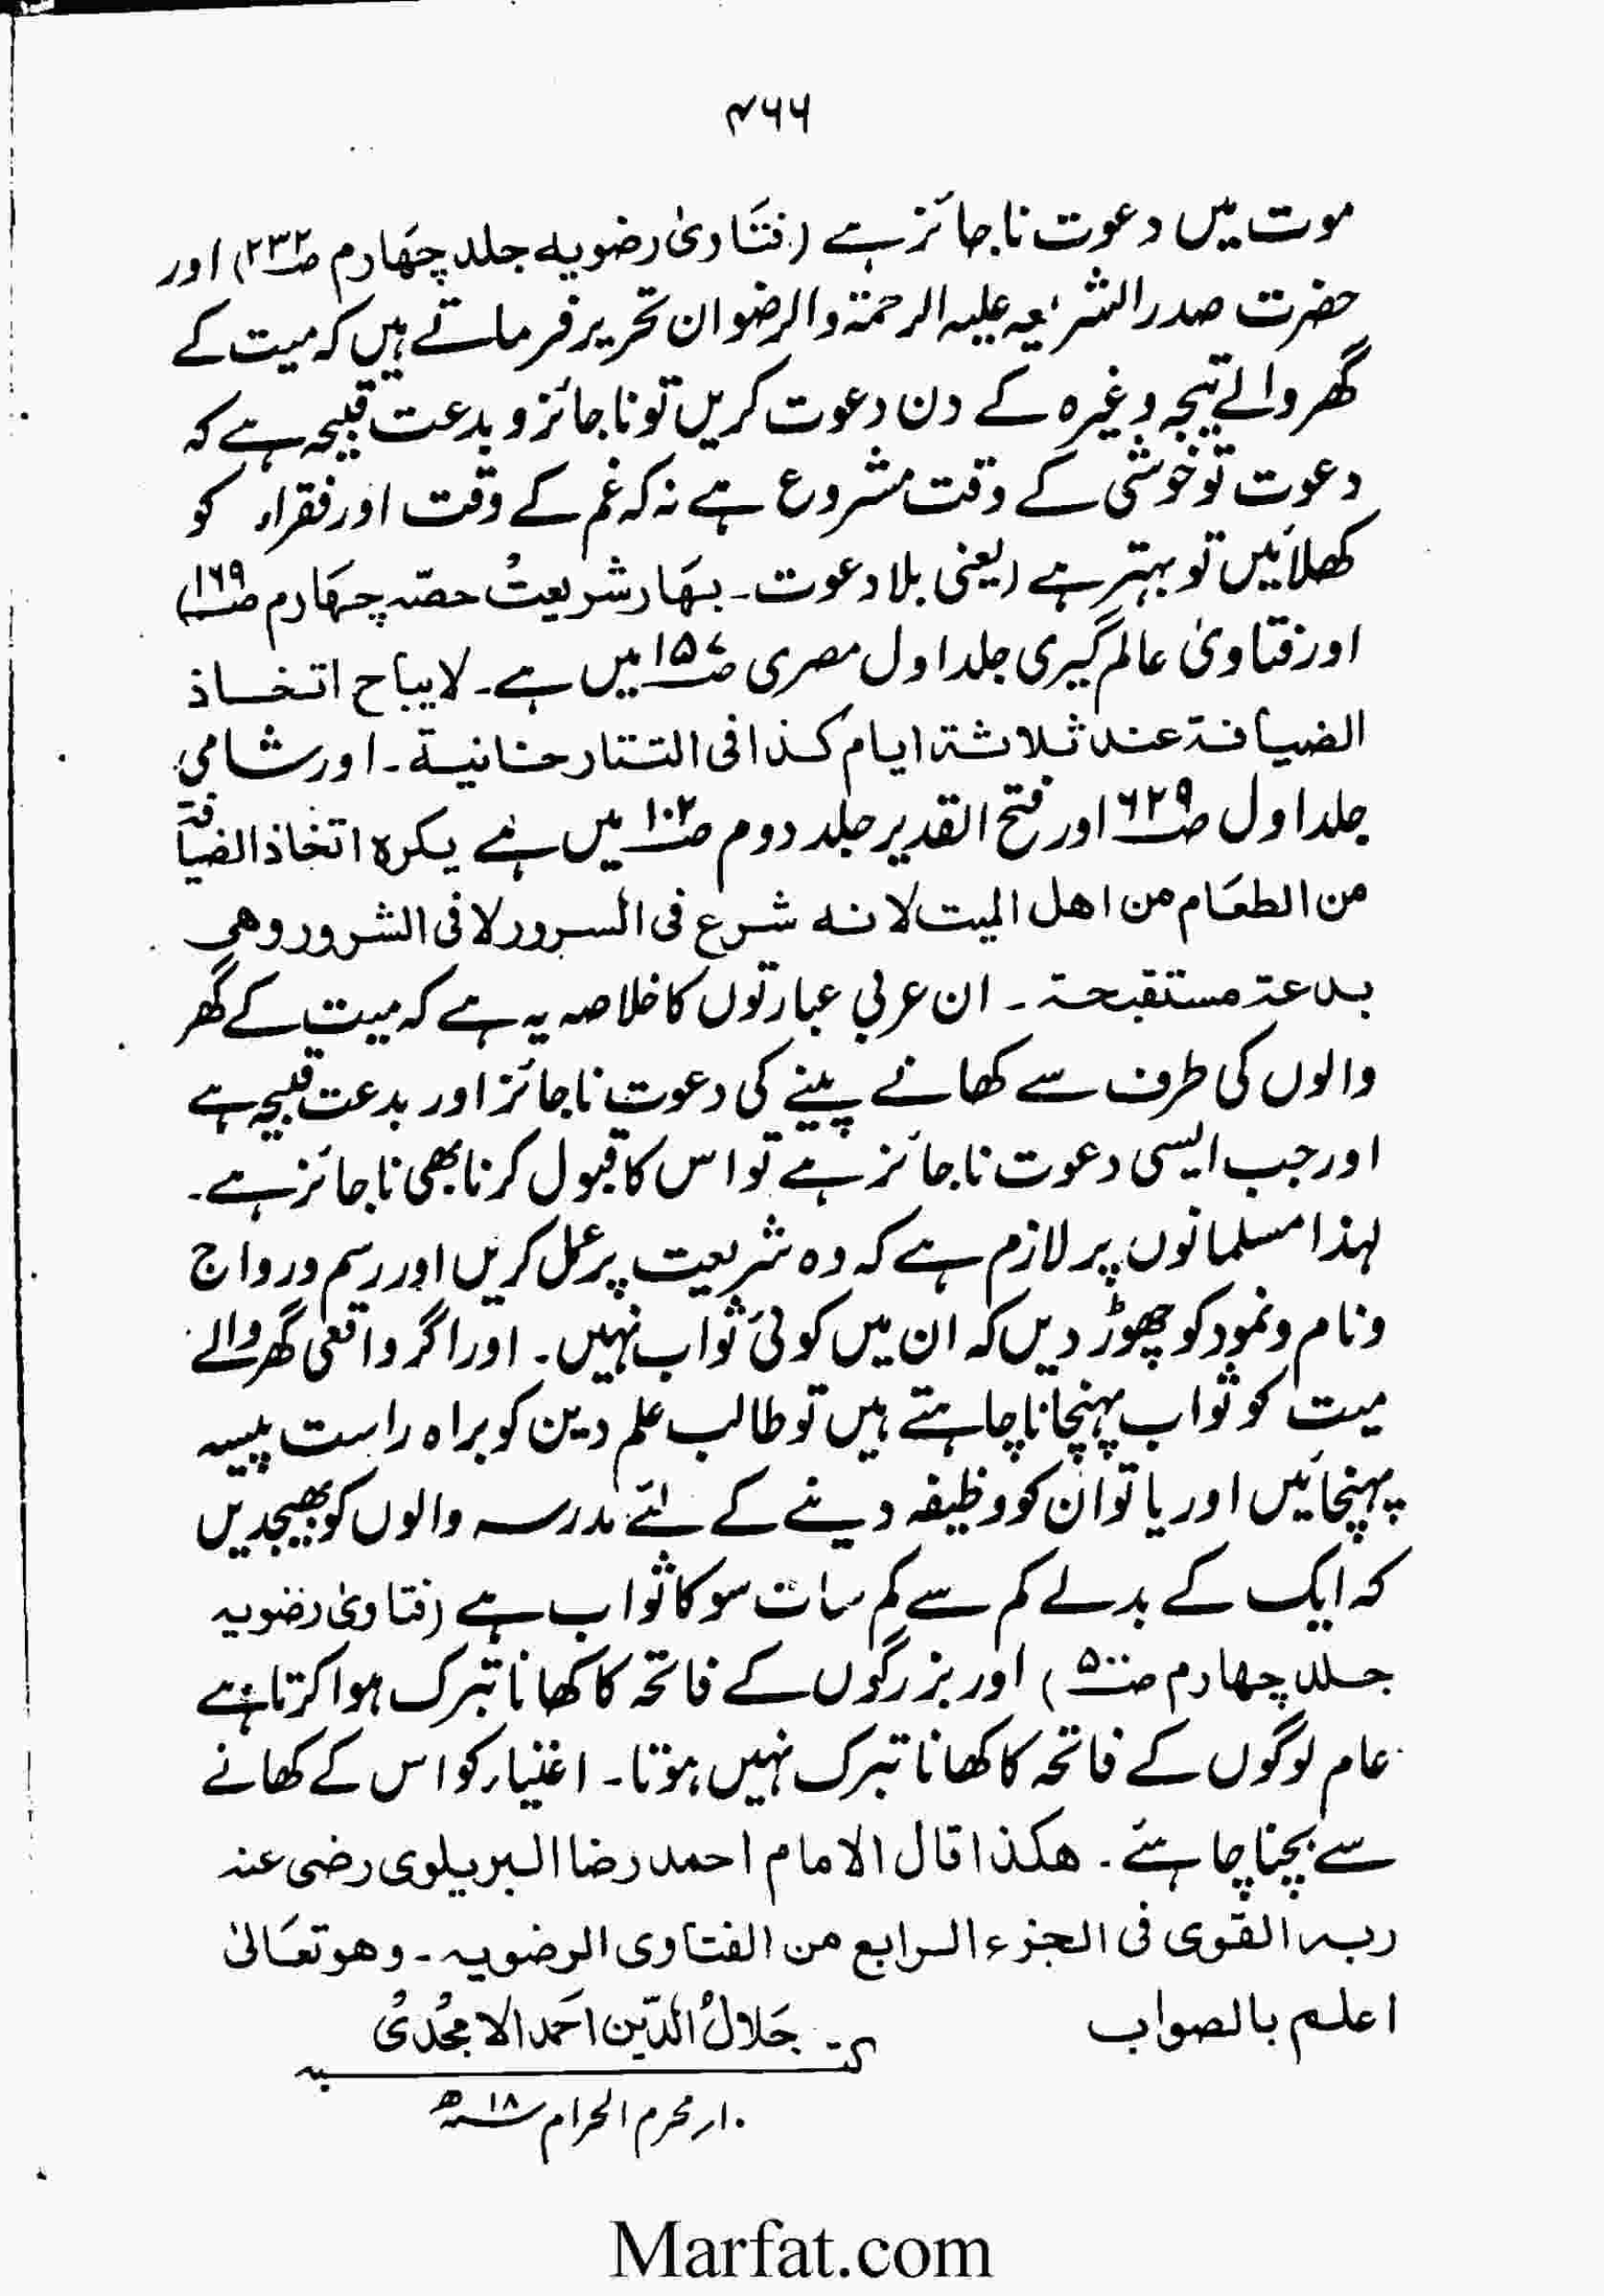 ۴۶۶
موت میں دعوت ناجائز ہے (فتاویٰ رضویہ جلد چہارم ص۲۳۲) اور
حضرت صدر الشریعہ علیہ الرحمۃ والرضوان تحریر فرماتے ہیں کہ میت کے
گھر والے تیجہ وغیرہ کے دن دعوت کریں تو ناجائز و بدعت قبیحہ ہے کہ
دعوت تو خوشی کے وقت مشروع ہے نہ کہ غم کے وقت اور فقراء کو
کھلائیں تو بہتر ہے (یعنی بلا دعوت۔ بہار شریعت حصّہ چہارم ص۱۶۹)
اور فتاویٰ عالم گیری جلد اول مصری ص۱۵۷ میں ہے۔ لا یباح اتخاذ
الضیافۃ عند ثلاثۃ ایام کذا فی التتار خانیۃ۔ اور شامی
جلد اول ص۶۲۹ اور فتح القدیر جلد دوم ص۱۰۲ میں ہے یکرہ اتخاذ الضیافۃ
من الطعام من اھل المیت لانہ شرع فی السرور لا فی الشرور وھی
بدعۃ مستقبحۃ۔ ان عربی عبارتوں کا خلاصہ یہ ہے کہ میت کے گھر
والوں کی طرف سے کھانے پینے کی دعوت ناجائز اور بدعت قبیحہ ہے
اور جب ایسی دعوت ناجائز ہے تو اس کا قبول کرنا بھی ناجائز ہے۔
لہذا مسلمانوں پر لازم ہے کہ وہ شریعت پر عمل کریں اور رسم و رواج
و نام و نمود کو چھوڑ دیں کہ ان میں کوئی ثواب نہیں۔ اور اگر واقعی گھر والے
میت کو ثواب پہنچانا چاہتے ہیں تو طالب علم دین کو براہ راست پیسہ
پہنچائیں اور یا تو ان کو وظیفہ دینے کے لئے مدرسہ والوں کو بھیجدیں
کہ ایک کے بدلے کم سے کم سات سو کا ثواب ہے (فتاویٰ رضویہ
جلد چہارم ص۵۰۰) اور بزرگوں کے فاتحہ کا کھانا تبرک ہوا کرتا ہے
عام لوگوں کے فاتحہ کا کھانا تبرک نہیں ہوتا۔ اغنیاء کو اس کے کھانے
سے بچنا چاہئے۔ ھکذا قال الامام احمد رضا البریلوی رضی عنہ
ربہ القوی فی الجزء الرابع من الفتاوی الرضویہ۔ وھو تعالیٰ
اعلم بالصواب
کتبہ جلال الدّین احمد الامجدی
۱۰؍ محرم الحرام ۱۸ھ
Marfat.com